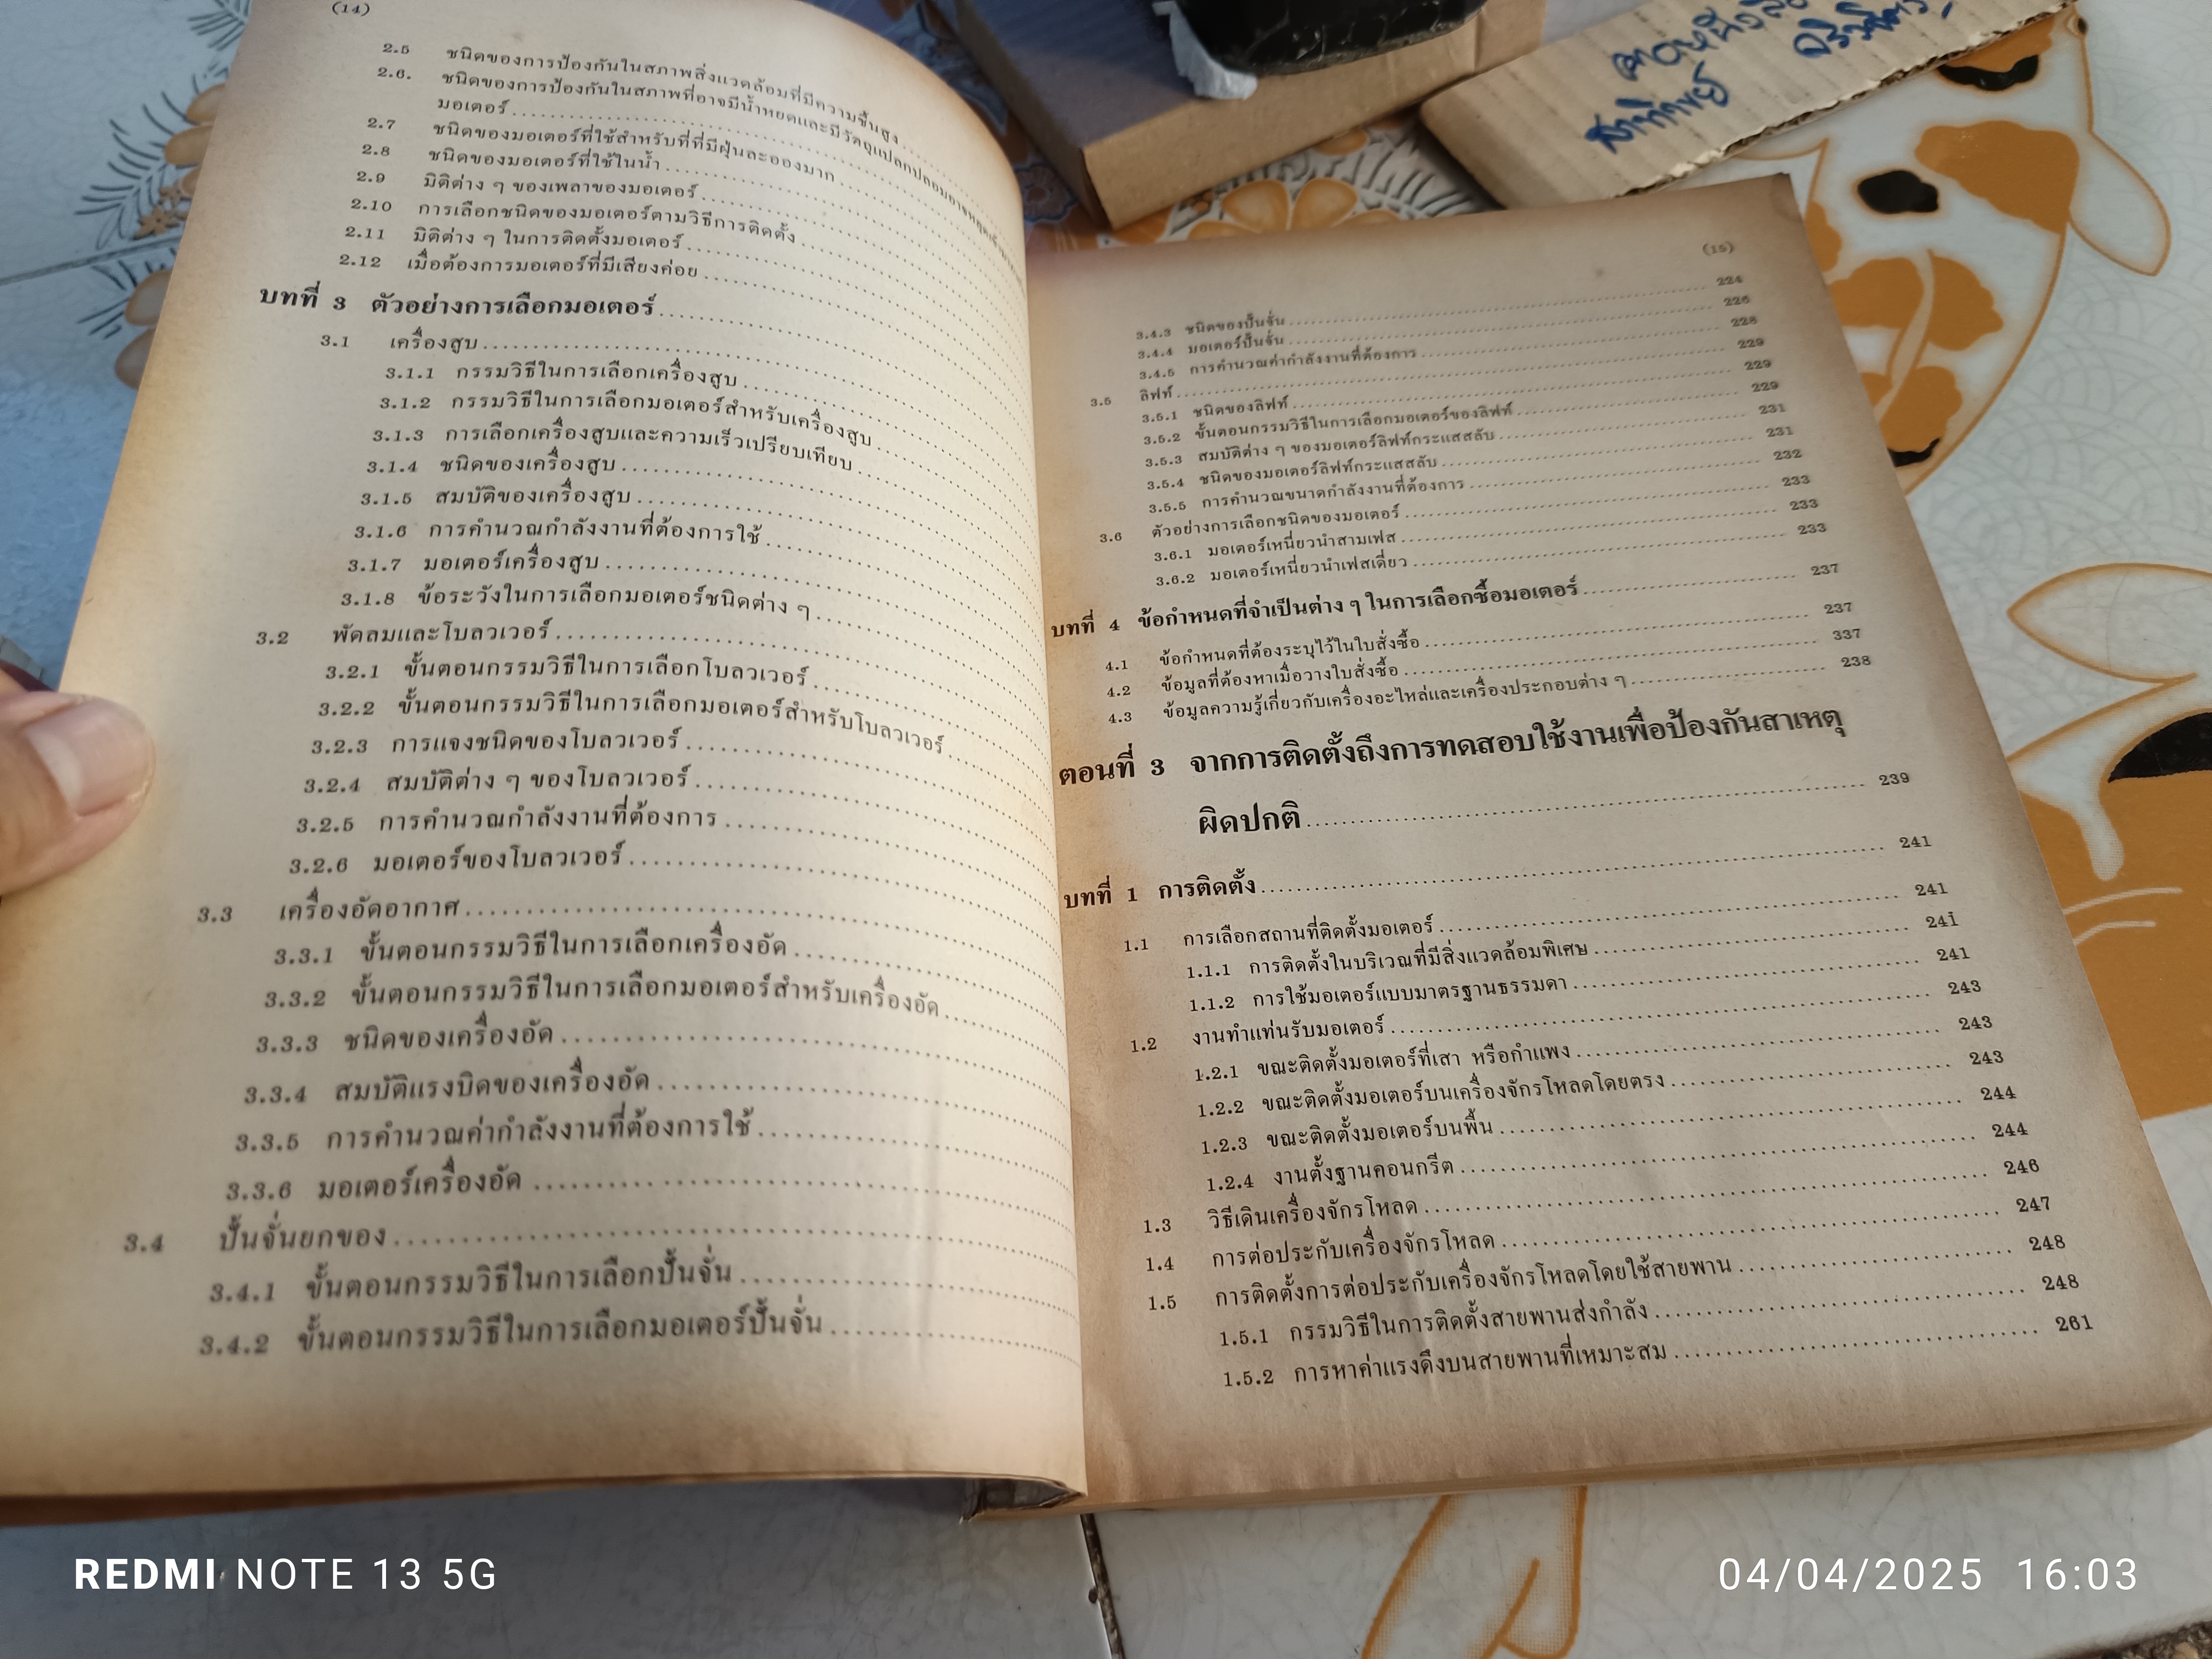 (14)
2.5 ชนิดของการป้องกันในสภาพสิ่งแวดล้อมที่มีความชื้นสูง
2.6. ชนิดของการป้องกันในสภาพที่อาจมีน้ำหยดและมีวัตถุแปลกปลอม
มอเตอร์
2.7 ชนิดของมอเตอร์ที่ใช้สำหรับที่ที่มีฝุ่นละอองมาก
2.8 ชนิดของมอเตอร์ที่ใช้ในน้ำ
2.9 มิติต่าง ๆ ของเพลาของมอเตอร์
2.10 การเลือกชนิดของมอเตอร์ตามวิธีการติดตั้ง
2.11 มิติต่าง ๆ ในการติดตั้งมอเตอร์
2.12 เมื่อต้องการมอเตอร์ที่มีเสียงค่อย
บทที่ 3 ตัวอย่างการเลือกมอเตอร์
3.1 เครื่องสูบ
3.1.1 กรรมวิธีในการเลือกเครื่องสูบ
3.1.2 กรรมวิธีในการเลือกมอเตอร์สำหรับเครื่องสูบ
3.1.3 การเลือกเครื่องสูบและความเร็วเปรียบเทียบ
3.1.4 ชนิดของเครื่องสูบ
3.1.5 สมบัติของเครื่องสูบ
3.1.6 การคำนวณกำลังงานที่ต้องการใช้
3.1.7 มอเตอร์เครื่องสูบ
3.1.8 ข้อระวังในการเลือกมอเตอร์ชนิดต่าง ๆ
3.2 พัดลมและโบลวเวอร์
3.2.1 ขั้นตอนกรรมวิธีในการเลือกโบลวเวอร์
3.2.2 ขั้นตอนกรรมวิธีในการเลือกมอเตอร์สำหรับโบลวเวอร์
3.2.3 การแจงชนิดของโบลวเวอร์
3.2.4 สมบัติต่าง ๆ ของโบลวเวอร์
3.2.5 การคำนวณกำลังงานที่ต้องการ
3.2.6 มอเตอร์ของโบลวเวอร์
3.3 เครื่องอัดอากาศ
3.3.1 ขั้นตอนกรรมวิธีในการเลือกเครื่องอัด
3.3.2 ขั้นตอนกรรมวิธีในการเลือกมอเตอร์สำหรับเครื่องอัด
3.3.3 ชนิดของเครื่องอัด
3.3.4 สมบัติแรงบิดของเครื่องอัด
3.3.5 การคำนวณค่ากำลังงานที่ต้องการใช้
3.3.6 มอเตอร์เครื่องอัด
3.4 ปั้นจั่นยกของ
3.4.1 ขั้นตอนกรรมวิธีในการเลือกปั้นจั่น
3.4.2 ขั้นตอนกรรมวิธีในการเลือกมอเตอร์ปั้นจั่น
(15)
3.4.3 ชนิดของปั้นจั่น 224
3.4.4 มอเตอร์ปั้นจั่น 226
3.4.5 การคำนวณค่ากำลังงานที่ต้องการ 228
3.5 ลิฟท์ 229
3.5.1 ชนิดของลิฟท์ 229
3.5.2 ขั้นตอนกรรมวิธีในการเลือกมอเตอร์ของลิฟท์ 229
3.5.3 สมบัติต่าง ๆ ของมอเตอร์ลิฟท์กระแสสลับ 231
3.5.4 ชนิดของมอเตอร์ลิฟท์กระแสสลับ 231
3.5.5 การคำนวณขนาดกำลังงานที่ต้องการ 232
3.6 ตัวอย่างการเลือกชนิดของมอเตอร์ 233
3.6.1 มอเตอร์เหนี่ยวนำสามเฟส 233
3.6.2 มอเตอร์เหนี่ยวนำเฟสเดี่ยว 233
บทที่ 4 ข้อกำหนดที่จำเป็นต่าง ๆ ในการเลือกซื้อมอเตอร์ 237
4.1 ข้อกำหนดที่ต้องระบุไว้ในใบสั่งซื้อ 237
4.2 ข้อมูลที่ต้องหาเมื่อวางใบสั่งซื้อ 337
4.3 ข้อมูลความรู้เกี่ยวกับเครื่องอะไหล่และเครื่องประกอบต่าง ๆ 238
ตอนที่ 3 จากการติดตั้งถึงการทดสอบใช้งานเพื่อป้องกันสาเหตุ
ผิดปกติ 239
บทที่ 1 การติดตั้ง 241
1.1 การเลือกสถานที่ติดตั้งมอเตอร์ 241
1.1.1 การติดตั้งในบริเวณที่มีสิ่งแวดล้อมพิเศษ 241
1.1.2 การใช้มอเตอร์แบบมาตรฐานธรรมดา 241
1.2 งานทำแท่นรับมอเตอร์ 243
1.2.1 ขณะติดตั้งมอเตอร์ที่เสา หรือกำแพง 243
1.2.2 ขณะติดตั้งมอเตอร์บนเครื่องจักรโหลดโดยตรง 243
1.2.3 ขณะติดตั้งมอเตอร์บนพื้น 244
1.2.4 งานตั้งฐานคอนกรีต 244
1.3 วิธีเดินเครื่องจักรโหลด 246
1.4 การต่อประกับเครื่องจักรโหลด 247
1.5 การติดตั้งการต่อประกับเครื่องจักรโหลดโดยใช้สายพาน 248
1.5.1 กรรมวิธีในการติดตั้งสายพานส่งกำลัง 248
1.5.2 การหาค่าแรงดึงบนสายพานที่เหมาะสม 261
REDMI NOTE 13 5G
04/04/2025 16:03